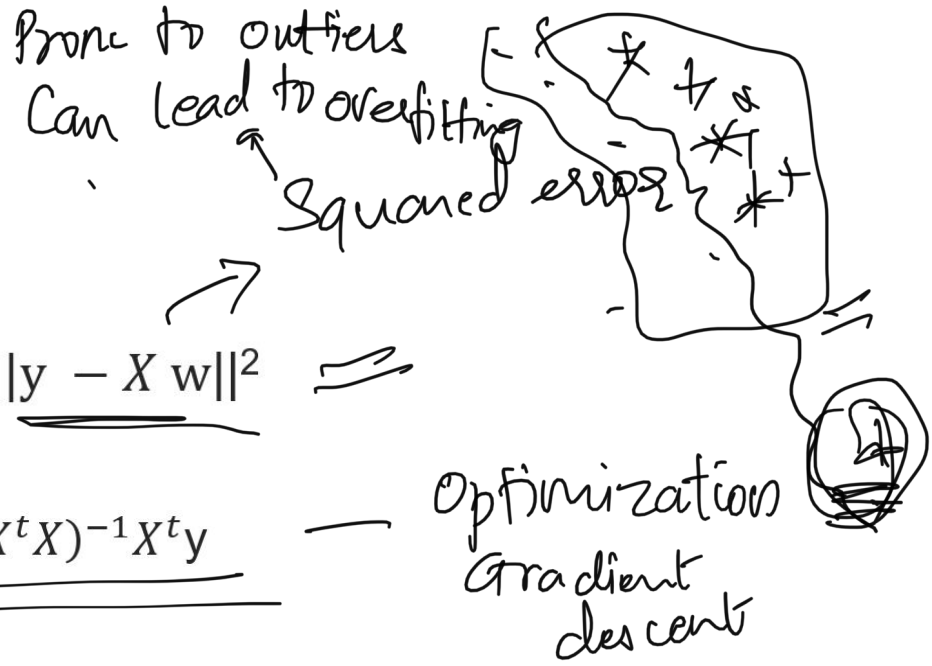 Prone to outliers
Can lead to overfitting
Squared error
|y − X w||²
XᵗX)⁻¹Xᵗy
Optimization
Gradient
descent